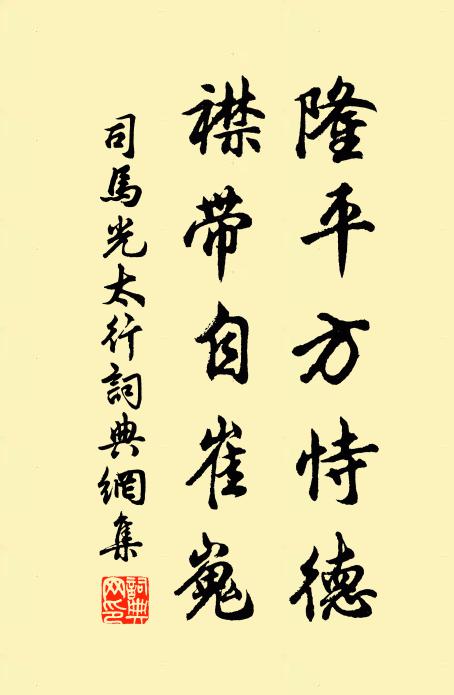 隆平方恃德
襟带自崔嵬
司馬光太行詞典網集
詞典网印